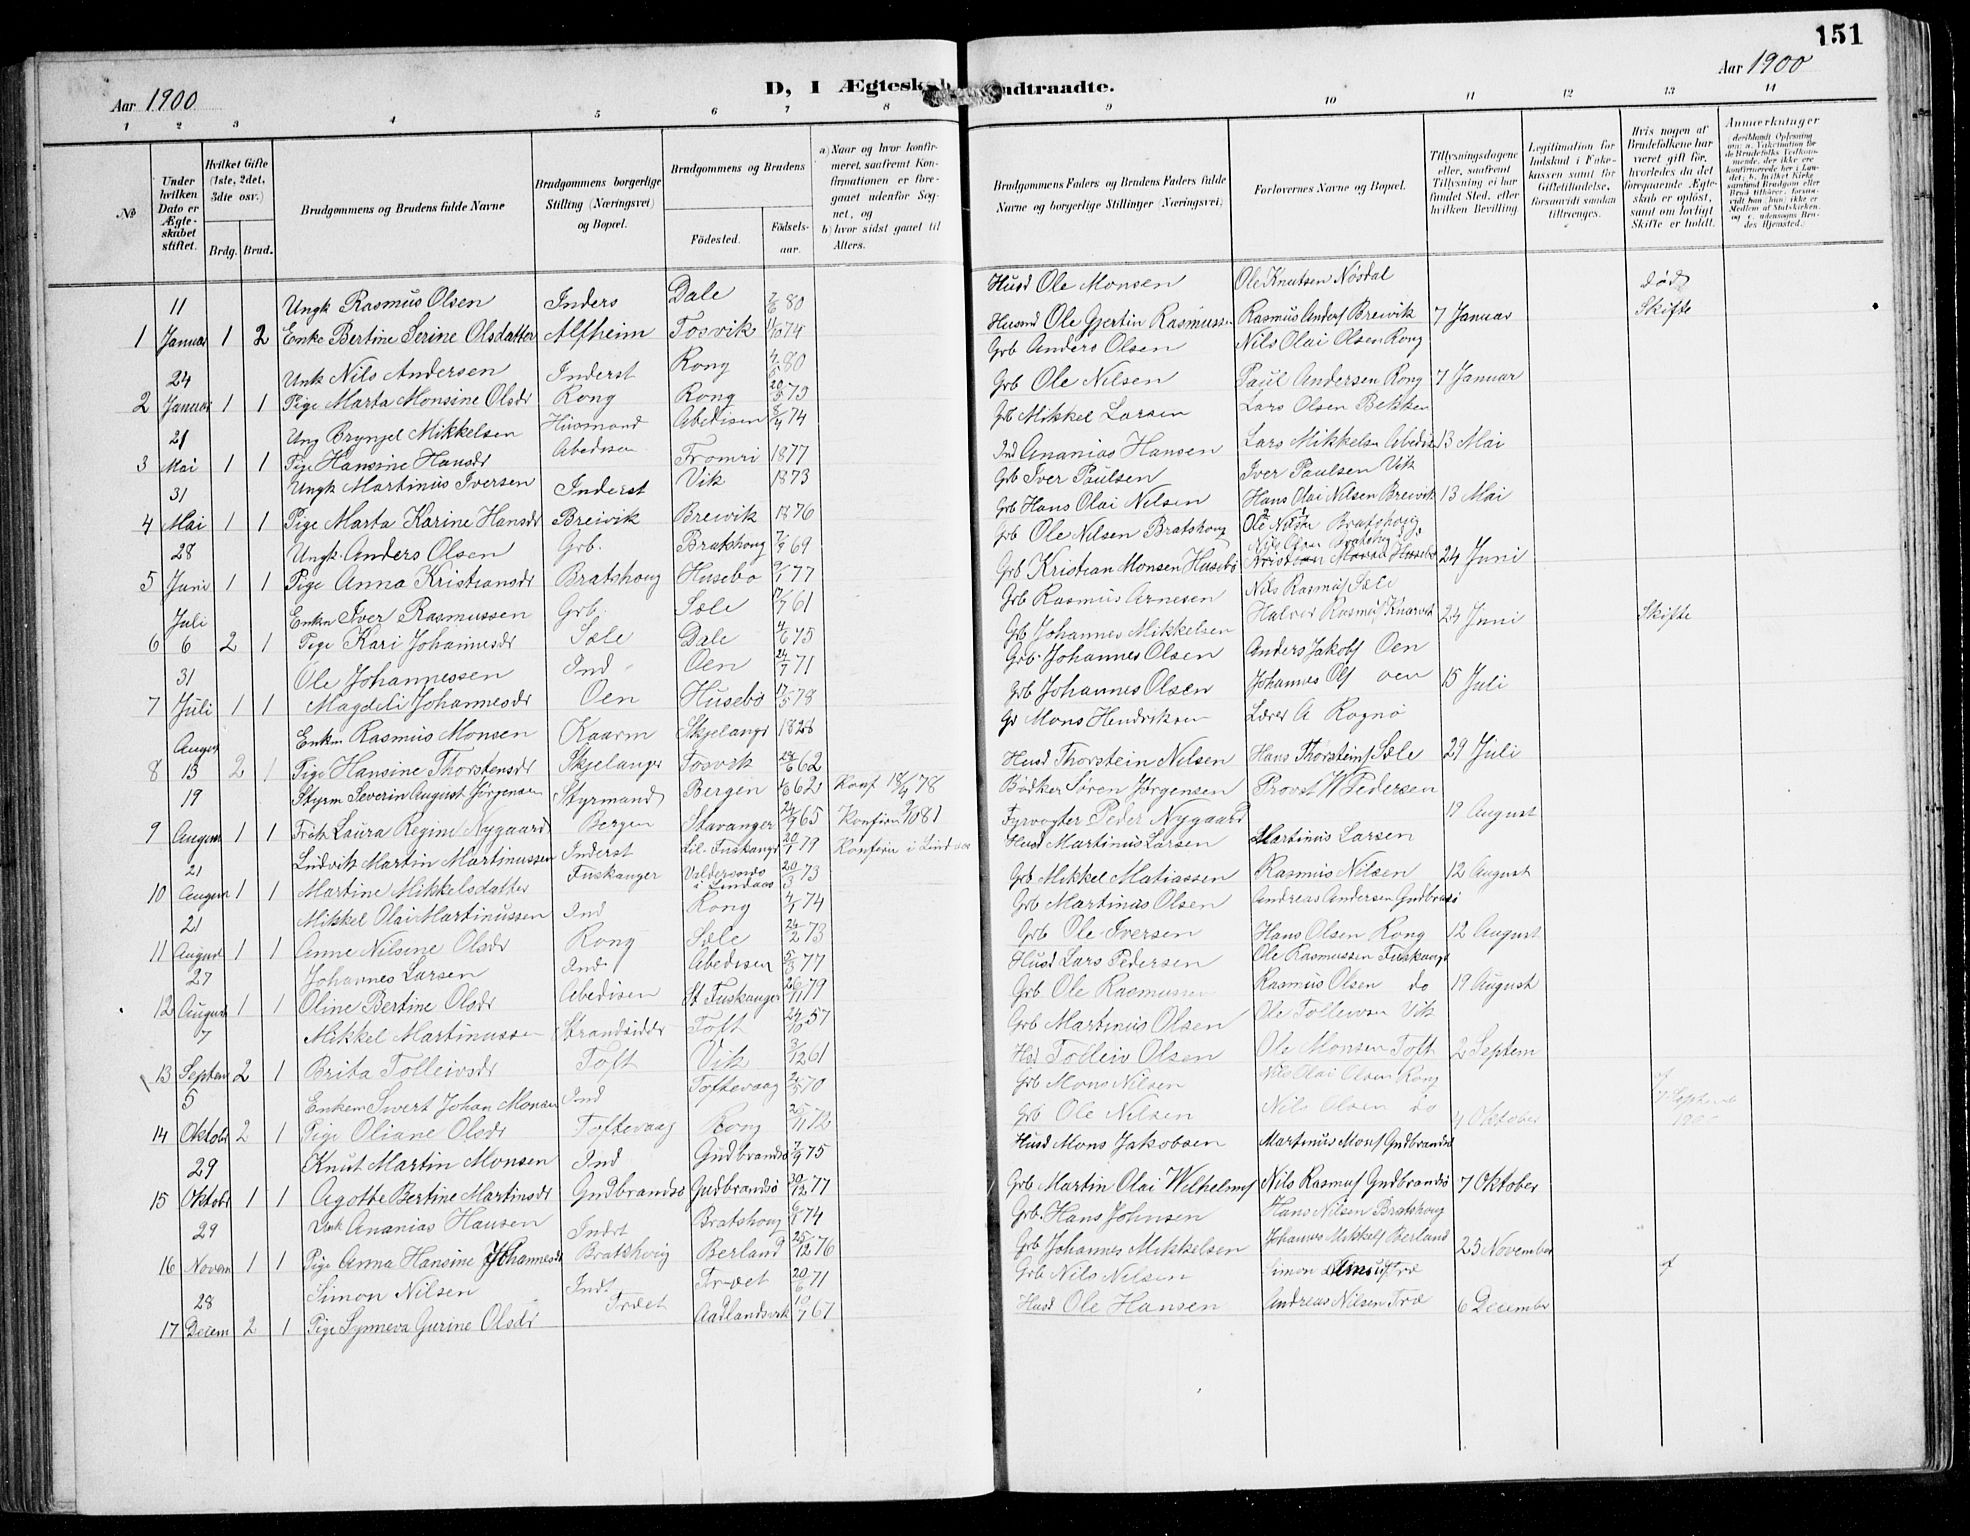 151
Aar 1900
D, I Ægteskab Indtraadte.
Aar 1900
1 2 3 4 5 6 7 8 9 10 11 12 13 14
No
Under hvilken Dato er Ægteskabet stiftet.
Hvilket Gifte (1ste, 2det, 3dte osv.)
Brdg. Brud.
Brudgommens og Brudens fulde Navne
Brudgommens borgerlige Stilling (Næringsvei) og Bopæl.
Brudgommens og Brudens
Födested. Födselsaar.
a) Naar og hvor konfirmeret, saafremt Konfirmationen er foregaaet udenfor Sognet, og
b) hvor sidst gaaet til Alters.
Brudgommens Faders og Brudens Faders fulde Navne og borgerlige Stillinger (Næringsvei)
Forlovernes Navne og Bopæl.
Tillysningsdagene eller, saafremt Tillysning ei har fundet Sted, efter hvilken Bevilling
Legitimation for Indskud i Enkekassen samt for Giftetilladelse, forsaavidt saadan tiltrænges.
Hvis nogen af Brudefolkene har været gift før, hvorledes da det foregaaende Ægteskab er opløst, samt om lovligt Skifte er holdt.
Anmerkninger
11 Ungk Rasmus Olsen Inders Dale 80 Husd Ole Monsen Ole Knutsen Nösdal död
1 Januar 1 2 Enke Bertine Serine Olsdatter Alfheim Tosvik 74 Husmd Ole Gjertin Rasmussen Rasmus Anders Breivik 7 Januar Skifte
24 Unk Nils Andersen Inderst Rong 80 Grb Anders Olsen Nils Olai Olsen Rong
2 Januar 1 1 Pige Marta Monsine Olsdr Rong Rong 20/5 79 Grb Ole Nilsen Paul Andersen Rong 7 Januar
21 Ung Brynjel Mikkelsen Husmand Abedisen 8/4 74 Grb Mikkel Larsen Lars Olsen Bekken
3 Mai 1 1 Pige Hansine Hansdr Abedisen Fromri 1877 Ind Ananias Hansen Lars Mikkelsen Abedisen 13 Mai
31 Ungk Martinus Iversen Inderst Vik 1873 Grb Iver Paulsen Iver Paulsen Vik
4 Mai 1 1 Pige Marta Karine Hansdr Breivik Breivik 1876 Grb Hans Olai Nilsen Hans Olai Nilsen Breivik 13 Mai
28 Ungk. Anders Olsen Grb. Bratshoug 69 Grb Ole Nilsen Bratshoug Ole Nilsen Bratshoug
5 Juni 1 1 Pige Anna Kristiansdr Bratshoug Husebö 9/1 77 Grb Kristian Monsen Husebö Kristian Monsen Husebö 24 Juni
Juli Enkm Iver Rasmussen Grb. Sæle 17/7 61 Grb Rasmus Arnesen Nils Rasmus Sæle
6 6 2 1 Pige Kari Johannesdr Sæle Dale 4/6 75 Grb Johannes Mikkelsen Halvor Rasmus Knarvik 24 Juni Skifte
31 Ole Johannessen Ind Oen 24/7 71 Grb Johannes Olsen Anders Jakobs Oen
7 Juli 1 1 Magdeli Johannesdr Oen Husebö 17/5 78 Grb Johannes Olsen Johannes Ols oen 15 Juli
August Enkm Rasmus Monsen Kaarm Skjelangr 1826 Gr Mons Hendriksen Lærer A Rognö
8 13 2 1 Pige Hansine Thorstensdr Skjelanger Tosvik 62 Husd Thorstein Nilsen Hans Thorsteins Sæle 29 Juli
19 Styrm Severin August Jörgensen Styrmand Bergen 62 Konf 18/4 78 Bödker Sören Jörgensen Provst W Pedersen
9 August 1 1 Frök Laura Regine Nygaard Bergen Stavanger 24/9 65 Konfirm 2/10 81 Fyrvogter Peder Nygaard 19 August
21 Ludvik Martin Martinussen Inderst Lil. Fuskangr 20/1 79 Konferm i Lindaas Husd Martinus Larsen Martinus Larsen
10 August 1 1 Martine Mikkelsdatter Fuskanger Valdersnös i Lindaas 20/3 73 Grb Mikkel Matiassen Rasmus Nilsen 12 August
21 Mikkel Olai Martinussen Ind Rong 74 Grb Martinus Olsen Andreas Andersen Gudbransö
11 August 1 1 Anne Nilsene Olsdr Rong Sæle 73 Grb Ole Iversen Hans Olsen Rong 12 August
27 Johannes Larsen Ind. Abedisen 5/3 77 Husd Lars Pedersen Ole Rasmussen Fuskangr
12 August 1 1 Oline Bertine Olsdr Abedisen St Fuskanger 26/11 79 Grb Ole Rasmussen Rasmus Olsen do 19 August
7 Mikkel Martinussen Strandsidder Toft 24/10 57 Grb Martinus Olsen Ole Tolleivsen Vik
13 Septem 2 1 Brita Tolleivsdr Toft Vik 3/12 61 Hsd Tolleiv Olsen Ole Monsen Toft 2 Septem
5 Enkem Sivert Johan Monsen Ind Toftevaag 70 Grb Mons Nilsen Nils Olai Olsen Rong
14 Oktobr 2 1 Pige Oliane Olsdr Toftevaag Rong 25/11 72 Grb Ole Nilsen Nils Olsen do 4 Oktober
29 Knut Martin Monsen Ind Gudbrandsö 7/9 75 Husd Mons Jakobsen Martinus Mons Gudbrandsö
15 Oktobr 1 1 Agotte Bertine Martinsdr Gudbrandsö Gudbrandsö 30/12 77 Grb Martin Olai Wilhelms Nils Rasmus Gudbrandsö 7 Oktober
29 Unk Ananias Hansen Indst Bratshoug 74 Grb. Hans Johnsen Hans Nilsen Bratshoug
16 Novem 1 1 Pige Anna Hansine Johannesdr Bratshoug Berland 25/12 76 Grb Johannes Mikkelsen Johannes Mikkels Berland 25 November
28 Simon Nilsen Inds Træet 20/6 71 Grb Nils Nilsen Simon Træ
17 Decem 2 1 Pige Synneva Gurine Olsdr Træet Aadlandsvik 67 Husd Ole Hansen Andreas Nilsen Træ 6 December